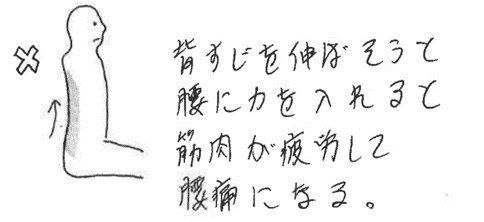 背すじを伸ばそうと
腰に力を入れると
筋肉が疲労して
腰痛になる。